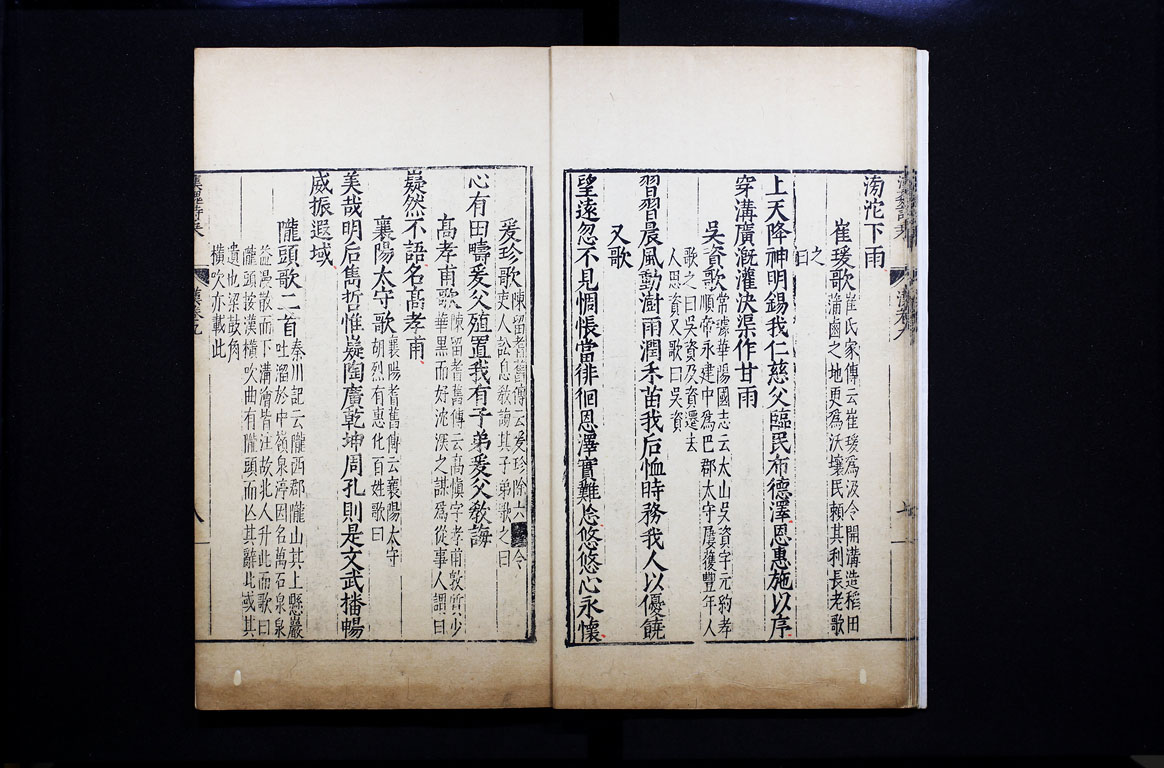 滂沱下雨
崔瑗歌崔氏家傳云崔瑗為汲令開溝造稻田
蒲鹵之地更為沃壤民賴其利長老歌
之
曰
上天降神明錫我仁慈父臨民布德澤恩惠施以序
穿溝廣漑灌決渠作甘雨
吳資歌常璩華陽國志云太山吳資字元約孝
順帝永建中為巴郡太守屢獲豐年人
歌之曰吳資及資遷去
人思資又歌曰吳資
習習晨風動澍雨潤禾苗我后恤時務我人以優饒
又歌
望遠忽不見惆悵當徘徊恩澤實難忘悠悠心永懷
爰珍歌陳留耆舊傳云爰珍除六令
吏人訟息敎誨其子弟歌之曰
心有田疇爰父殖置我有子弟爰父敎誨
高孝甫歌陳留耆舊傳云高愼字孝甫敦質少
華黑而好沈深之謀為從事人謂曰
嶷然不語名高孝甫
襄陽太守歌襄陽耆舊傳云襄陽太守
胡烈有惠化百姓歌曰
美哉明后雋哲惟嶷陶廣乾坤周孔則是文武播暢
威振遐域
隴頭歌二首秦川記云隴西郡隴山其上懸巖
吐溜於中嶺泉渟因名萬石泉泉
益漫散而下溝澮皆注故北人升此而歌曰
隴頭按漢橫吹曲有隴頭而亾其辭此或其
遺也梁鼓角
橫吹亦載此
八